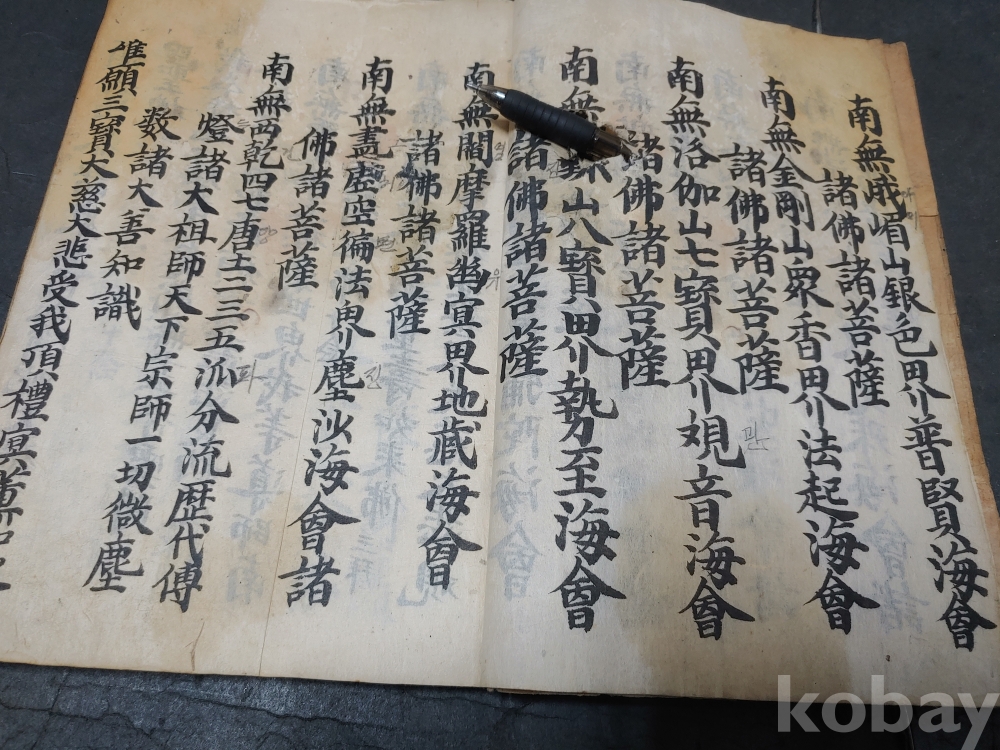 南無峨嵋山銀色界普賢海會
諸佛諸菩薩
南無金剛山衆香界法起海會
諸佛諸菩薩
南無洛伽山七寶界觀音海會
諸佛諸菩薩
南無 山八寶界勢至海會
諸佛諸菩薩
南無閻摩羅幽冥界地藏海會
諸佛諸菩薩
南無盡虛空徧法界塵沙海會諸
佛諸菩薩
南無西乾四七唐土二三五派分流歷代傳
燈諸大祖師天下宗師一切微塵
数諸大善知識
惟願三寶大慈大悲受我頂禮
염
유
변
진
파
관
kobay